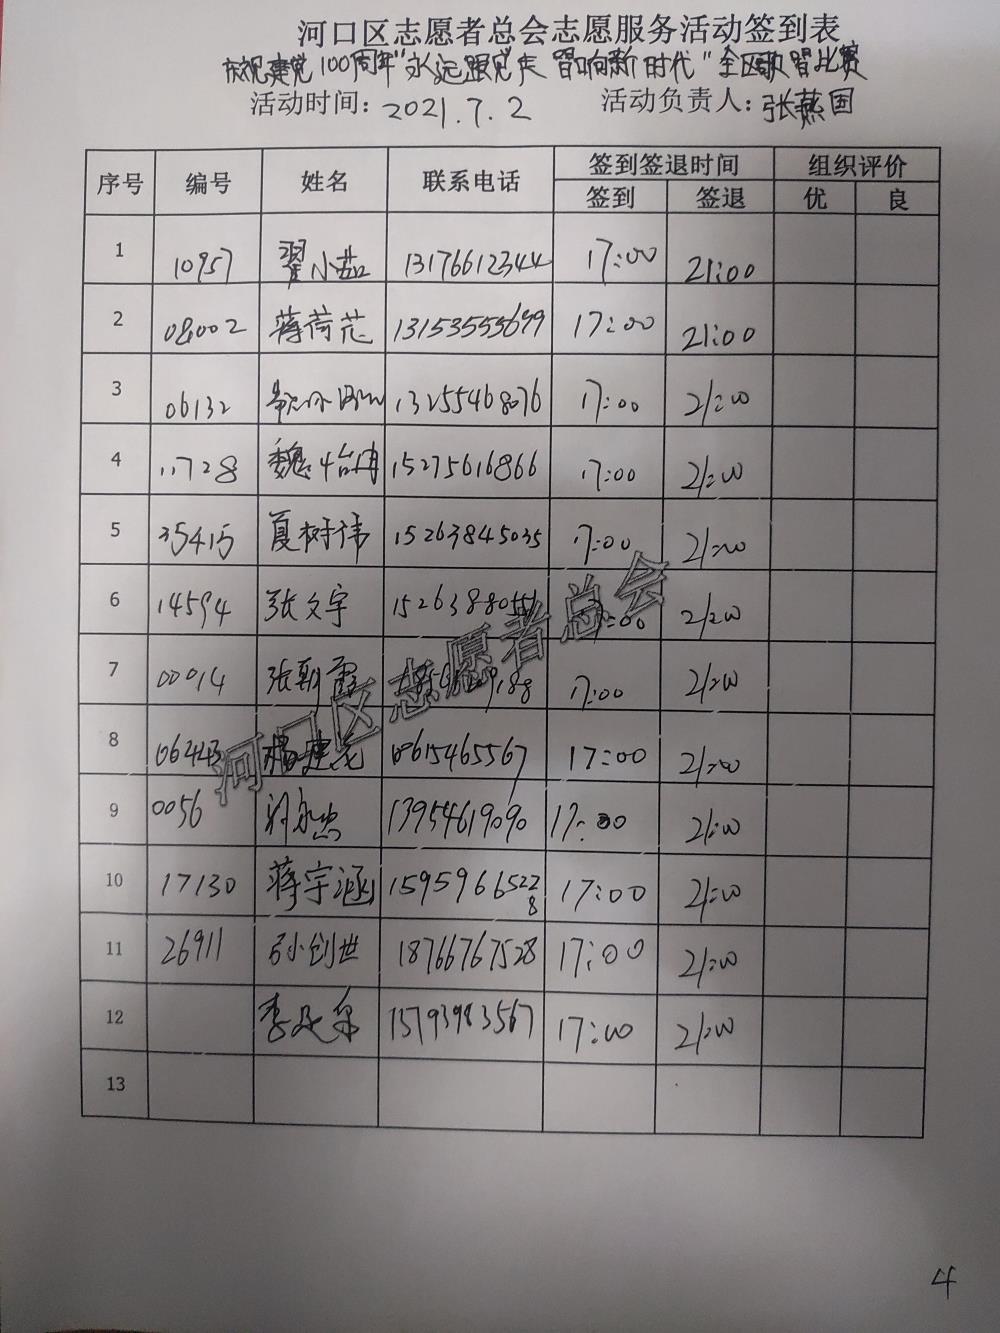 河口区志愿者总会志愿服务活动签到表
庆祝建党100周年"永远跟党走 唱响新时代"全区歌唱比赛
活动时间: 2021.7.2 活动负责人: 张燕国
序号 编号 姓名 联系电话 签到签退时间 组织评价
签到 签退 优 良
1 10957 翟小茹 13176612344 17:00 21:00
2 08002 蒋荷芯 13153555699 17:00 21:00
3 06132 13255468076 17:00 21:00
4 11728 魏怡冉 15275616866 17:00 21:00
5 35415 夏树伟 15263845035 17:00 21:00
6 14594 张文宇 17:00 21:00
7 00014 张朝霞 17:00 21:00
8 06243 杨建光 17:00 21:00
9 0056 13954619090 17:00 21:00
10 17130 蒋宇涵 15959665228 17:00 21:00
11 26911 孙创世 18766767528 17:00 21:00
12 李延泉 15793983567 17:00 21:00
13
河口区志愿者总会
4